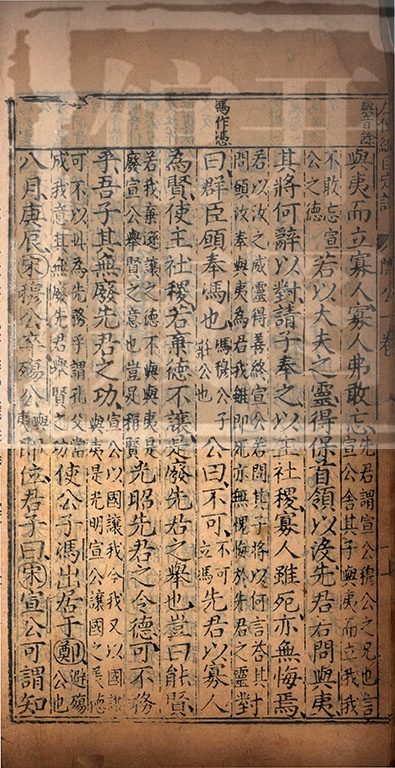 與夷而立寡人寡人弗敢忘先君謂宣公穆公之兄也言
宣公舍其子與夷而立我我
不敢忘宣
公之德
若以大夫之靈得保首領以沒先君若問與夷
其將何辭以對請子奉之以主社稷寡人雖死亦無悔焉
若以汝之威靈得善終宣公若問其子將以何言荅其對
問願汝奉與夷為君我雖即死亦無愧悔於先君之靈對
馮作慿
曰群臣願奉馮也馮穆公子
莊公也
公曰不可不可
立馮
先君以寡人
為賢使主社稷若棄德不讓是廢先君之舉也豈曰能賢
若我棄遜讓之德不與與夷是
廢宣公舉賢之意也豈足稱賢
光昭先君之令德可不務
乎吾子其無廢先君之功宣公以國讓我今我又以國讓
與夷是光明宣公讓國之善德
可不以此為先務乎謂孔父當
成我意其無廢先君舉賢之功
使公子馮出居于鄭避殤
公也
八月庚辰宋穆公卒殤公與
夷
即位君子曰宋宣公可謂知